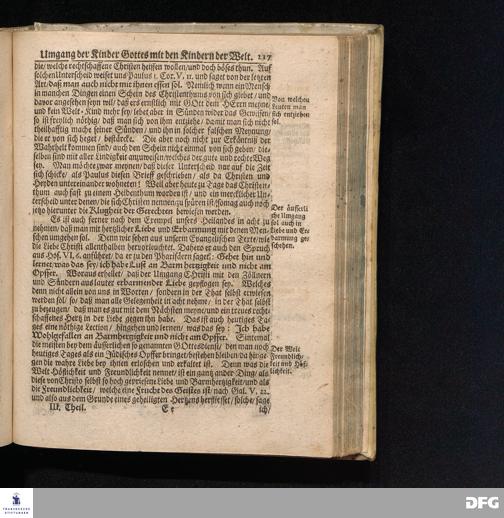 Umgang der Kinder Gottes mit den Kindern der Welt. 217
die/ welche rechtschaffene Christen heissen wollen/ und doch böses thun. Auf
solchen Unterscheid weiset uns Paulus 1. Cor. V, 11. und saget von der letzten
Art/ daß man auch nicht mit ihnen essen sol. Nemlich wenn ein Mensch
in manchen Dingen einen Schein des Christenthums von sich giebet/ und
davor angesehen seyn wil/ daß er es ernstlich mit GOtt dem HErrn meyne
und kein Welt-Kind mehr sey/ lebet aber in Sünden wider das Gewissen/
so ist freylich nöthig/ daß man sich von ihm entziehe/ damit man sich nicht
theilhafftig mache seiner Sünden/ und ihn in solcher falschen Meynung/
die er von sich heget/ bestärcke. Die aber noch nicht zur Erkäntniß der
Wahrheit kommen sind/ auch den Schein nicht einmal von sich geben/ die-
selben sind mit aller Lindigkeit anzuweisen/ welches der gute und rechte Weg
sey. Man möchte zwar meynen/ daß dieser Unterscheid nur auf die Zeit
sich schicke/ als Paulus diesen Brieff geschrieben/ als da Christen und
Heyden untereinander wohneten: Weil aber heute zu Tage das Christen-
thum auch fast zu einem Heidenthum worden ist/ und ein mercklicher Un-
terscheid unter denen/ die sich Christen nennen/ zu spüren ist/ so mag auch noch
jetzo hierunter die Klugheit der Gerechten bewiesen werden.
Es ist auch ferner nach dem Exempel unsers Heilandes in acht zu
nehmen/ daß man mit hertzlicher Liebe und Erbarmung mit denen Men-
schen umgehen sol. Denn wir sehen aus unserm Evangelischen Texte/ wie
die Liebe Christi allenthalben hervorleuchtet. Dahero er auch den Spruch
aus Hos. VI, 6. anführet/ da er zu den Pharisäern saget: Gehet hin und
lernet/ was das sey/ ich habe Lust an Barmhertzigkeit und nicht am
Opffer. Woraus erhellet/ daß der Umgang CHristi mit den Zöllnern
und Sündern aus lauter erbarmender Liebe geflogen sey. Welches
denn nicht allein von uns in Worten/ sondern in der That selbst erwiesen
werden sol/ so/ daß man alle Gelegenheit in acht nehme/ in der That selbst
zu bezeugen/ daß man es gut mit dem Nächsten meyne/ und ein treues recht-
schaffenes Hertz in der Liebe gegen ihn habe. Das ist auch heutiges Ta-
ges eine nöthige Lection/ hingehen und lernen/ was das sey: Ich habe
Wohlgefallen an Barmhertzigkeit und nicht am Opffer. Sintemal
die meisten bey dem äusserlichen so genannten GOttesdienst/ den man noch
heutiges Tages als ein Jüdisches Opffer bringet/ bestehen bleiben/ da hinge-
gen die wahre Liebe bey ihnen erloschen und erkaltet ist. Denn was die
Welt Höflichkeit und Freundlichkeit nennet/ ist ein gantz ander Ding/ als
diese von Christo selbst so hoch gepriesene Liebe und Barmhertzigkeit/ und als
die Freundlichkeit/ welche eine Frucht des Geistes ist/ nach Gal. V. 22.
und also aus dem Grunde eines geheiligten Hertzens herfliesset/ solche/ sage
III. Theil. E e ich/
Von welchen
Leuten man
sich entziehen
sol.
Der äusserli-
che Umgang
sol auch in
Liebe und Er-
barmung ge-
schehen.
Der Welt
Freundlich-
keit und Höf-
lichkeit.
FRANCKESCHE
STIFTUNGEN
DFG